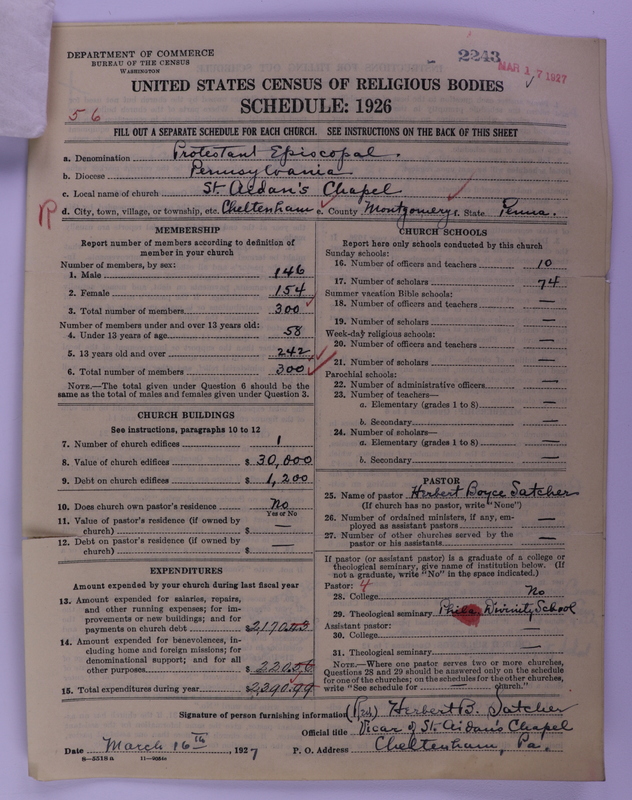 DEPARTMENT OF COMMERCE
BUREAU OF THE CENSUS
WASHINGTON
2243
MAR 17 1927
UNITED STATES CENSUS OF RELIGIOUS BODIES
SCHEDULE: 1926
56
FILL OUT A SEPARATE SCHEDULE FOR EACH CHURCH. SEE INSTRUCTIONS ON THE BACK OF THIS SHEET
a. Denomination Protestant Episcopal.
b. Diocese Pennsylvania
c. Local name of church St. Aidan's Chapel
R d. City, town, village, or township, etc. Cheltenham e. County Montgomery f. State Penna.
MEMBERSHIP
Report number of members according to definition of
member in your church
Number of members, by sex:
1. Male 146
2. Female 154
3. Total number of members 300
Number of members under and over 13 years old:
4. Under 13 years of age 58
5. 13 years old and over 242
6. Total number of members 300
NOTE.—The total given under Question 6 should be the
same as the total of males and females given under Question 3.
CHURCH BUILDINGS
See instructions, paragraphs 10 to 12
7. Number of church edifices 1
8. Value of church edifices $ 30,000
9. Debt on church edifices $ 1,200
10. Does church own pastor's residence? No
Yes or No
11. Value of pastor's residence (if owned by
church) $ —
12. Debt on pastor's residence (if owned by
church) $ —
EXPENDITURES
Amount expended by your church during last fiscal year
13. Amount expended for salaries, repairs,
and other running expenses; for im-
provements or new buildings; and for
payments on church debt $ 2170.43
14. Amount expended for benevolences, in-
cluding home and foreign missions; for
denominational support; and for all
other purposes $ 220.56
15. Total expenditures during year $ 2390.99
CHURCH SCHOOLS
Report here only schools conducted by this church
Sunday schools:
16. Number of officers and teachers 10
17. Number of scholars 74
Summer vacation Bible schools:
18. Number of officers and teachers —
19. Number of scholars —
Week-day religious schools:
20. Number of officers and teachers —
21. Number of scholars —
Parochial schools:
22. Number of administrative officers —
23. Number of teachers—
a. Elementary (grades 1 to 8) —
b. Secondary —
24. Number of scholars—
a. Elementary (grades 1 to 8) —
b. Secondary —
PASTOR
25. Name of pastor Herbert Boyce Satcher
(If church has no pastor, write "None")
26. Number of ordained ministers, if any, em-
ployed as assistant pastors —
27. Number of other churches served by the
pastor or his assistants —
If pastor (or assistant pastor) is a graduate of a college or
theological seminary, give name of institution below. (If
not a graduate, write "No" in the space indicated.)
Pastor: 4
28. College No
29. Theological seminary Phila. Divinity School
Assistant pastor:
30. College
31. Theological seminary —
NOTE.—Where one pastor serves two or more churches,
Questions 28 and 29 should be answered only on the schedule
for one of the churches; on the schedules for the other churches,
write "See schedule for — church."
Signature of person furnishing information (Rev.) Herbert B. Satcher
Official title Vicar of St. Aidan's Chapel
Date March 16th, 1927 P. O. Address Cheltenham, Pa.
8—5518a